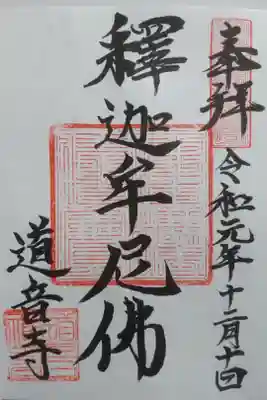 奉拝 令和元年十二月十
釋迦牟尼佛
道音寺